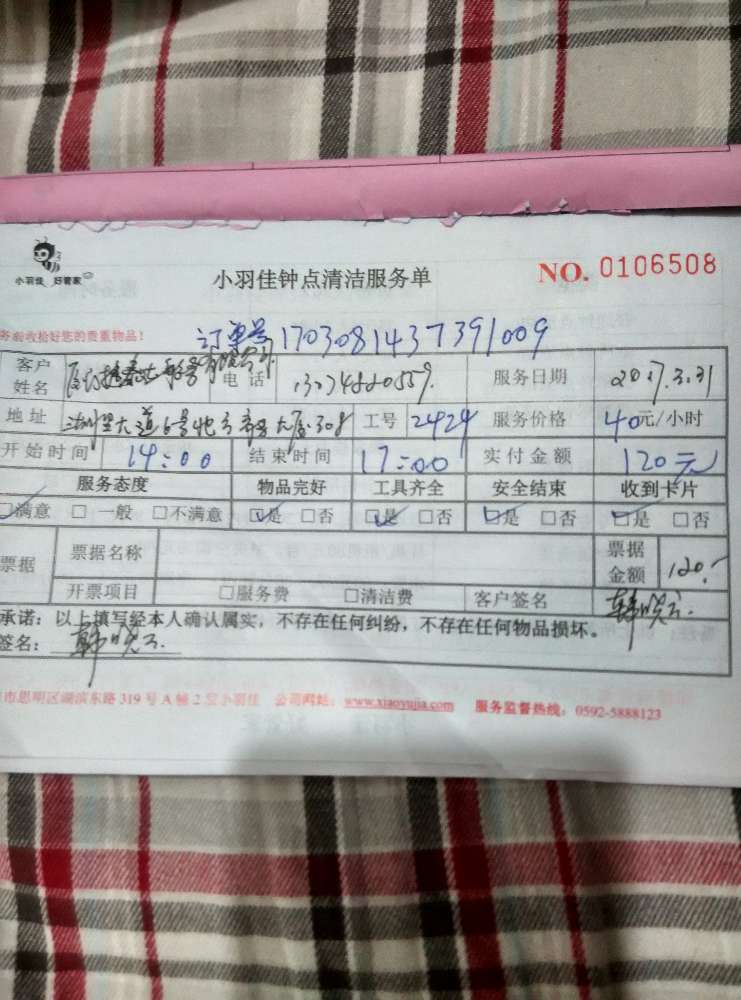 小羽佳 好管家
小羽佳钟点清洁服务单
NO. 0106508
务必收拾好您的贵重物品！
订单号 1703081437391009
客户姓名 电话 13074820559 服务日期 2017.3.31
地址 工号 2424 服务价格 40元/小时
开始时间 14:00 结束时间 17:00 实付金额 120元
服务态度 物品完好 工具齐全 安全结束 收到卡片
☑满意 □一般 □不满意 ☑是 □否 ☑是 □否 ☑是 □否 ☑是 □否
票据 票据名称 票据金额 120.-
开票项目 □服务费 □清洁费 客户签名 韩晓云
承诺：以上填写经本人确认属实，不存在任何纠纷，不存在任何物品损坏。
签名：韩晓云
市思明区湖滨东路 319 号 A 幢 2 层小羽佳 公司网站：www.xiaoyujia.com 服务监督热线：0592-5888123